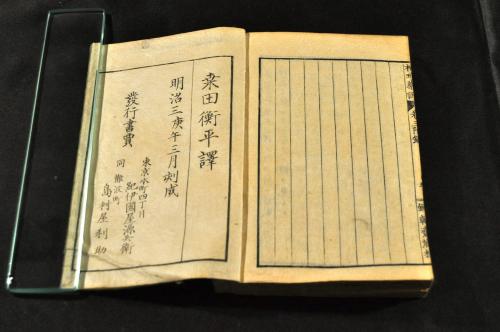 桒田衡平譯
明治三庚午三月刻成
發行書賈
東京本町四丁目
紀伊國屋源兵衛
同難波町
島村屋利助